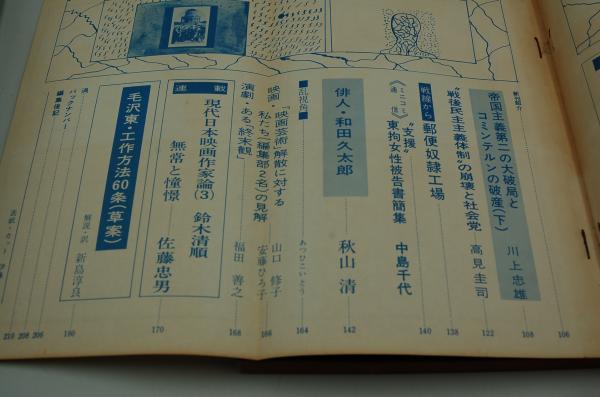 新刊紹介
106
帝国主義第二の大破局と
コミンテルンの破産(下)
川上忠雄
108
“戦後民主主義体制”の崩壊と社会党
高見圭司
122
戦線から
郵便奴隷工場
138
《ミニコミ通信》
“支援”
東拘女性被告書簡集
中島千代
140
俳人・和田久太郎
秋山清
142
■乱視角■
あつひこいとう
164
映画・「映画芸術」解散に対する
私たち(編集部2名)の見解
山口修子
安藤ひろ子
166
演劇・ある“終末観”
福田善之
168
連載
現代日本映画作家論(3) 鈴木清順
無常と憧憬
佐藤忠男
170
毛沢東・工作方法60条(草案)
解説・訳 新島淳良
190
バックナンバー
206
編集後記
208
表紙・カット
210